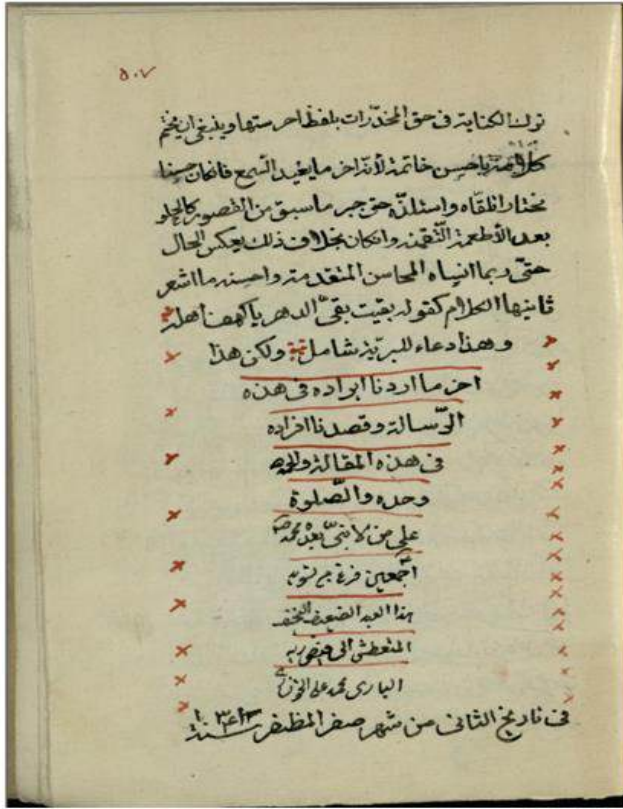 ۵۰۷
ترك الكناية في حق المخدّرات بلفظ احرستها وينبغي ان يختم
باحسن خاتمة لأنه آخر ما يفيد السمع فان كان حسنا
مختارا تلقّاه واستلذّه حتى جبر ما سبق من القصور كالحلو
بعد الأطعمة التفهة وان كان بخلاف ذلك يعكس الحال
حتّى ربما انساه المحاسن المتقدمة واحسنه ما اشعر
بانتهاء الكلام كقوله بقيت بقاء الدهر يا كهف أهله
وهذا دعاء للبرية شامل وليكن هذا
آخر ما اردنا ايراده في هذه
الرّسالة وقصدنا افراده
في هذه المقالة والحمد لله
وحده والصّلوة
على من لا نبيّ بعده محمد
اجمعين فرغ من تسويد
هذا العبد الضعيف النحيف
المتعطش الى فيض ربه
الباري محمد علي
في تاريخ الثاني من شهر صفر المظفر سنة